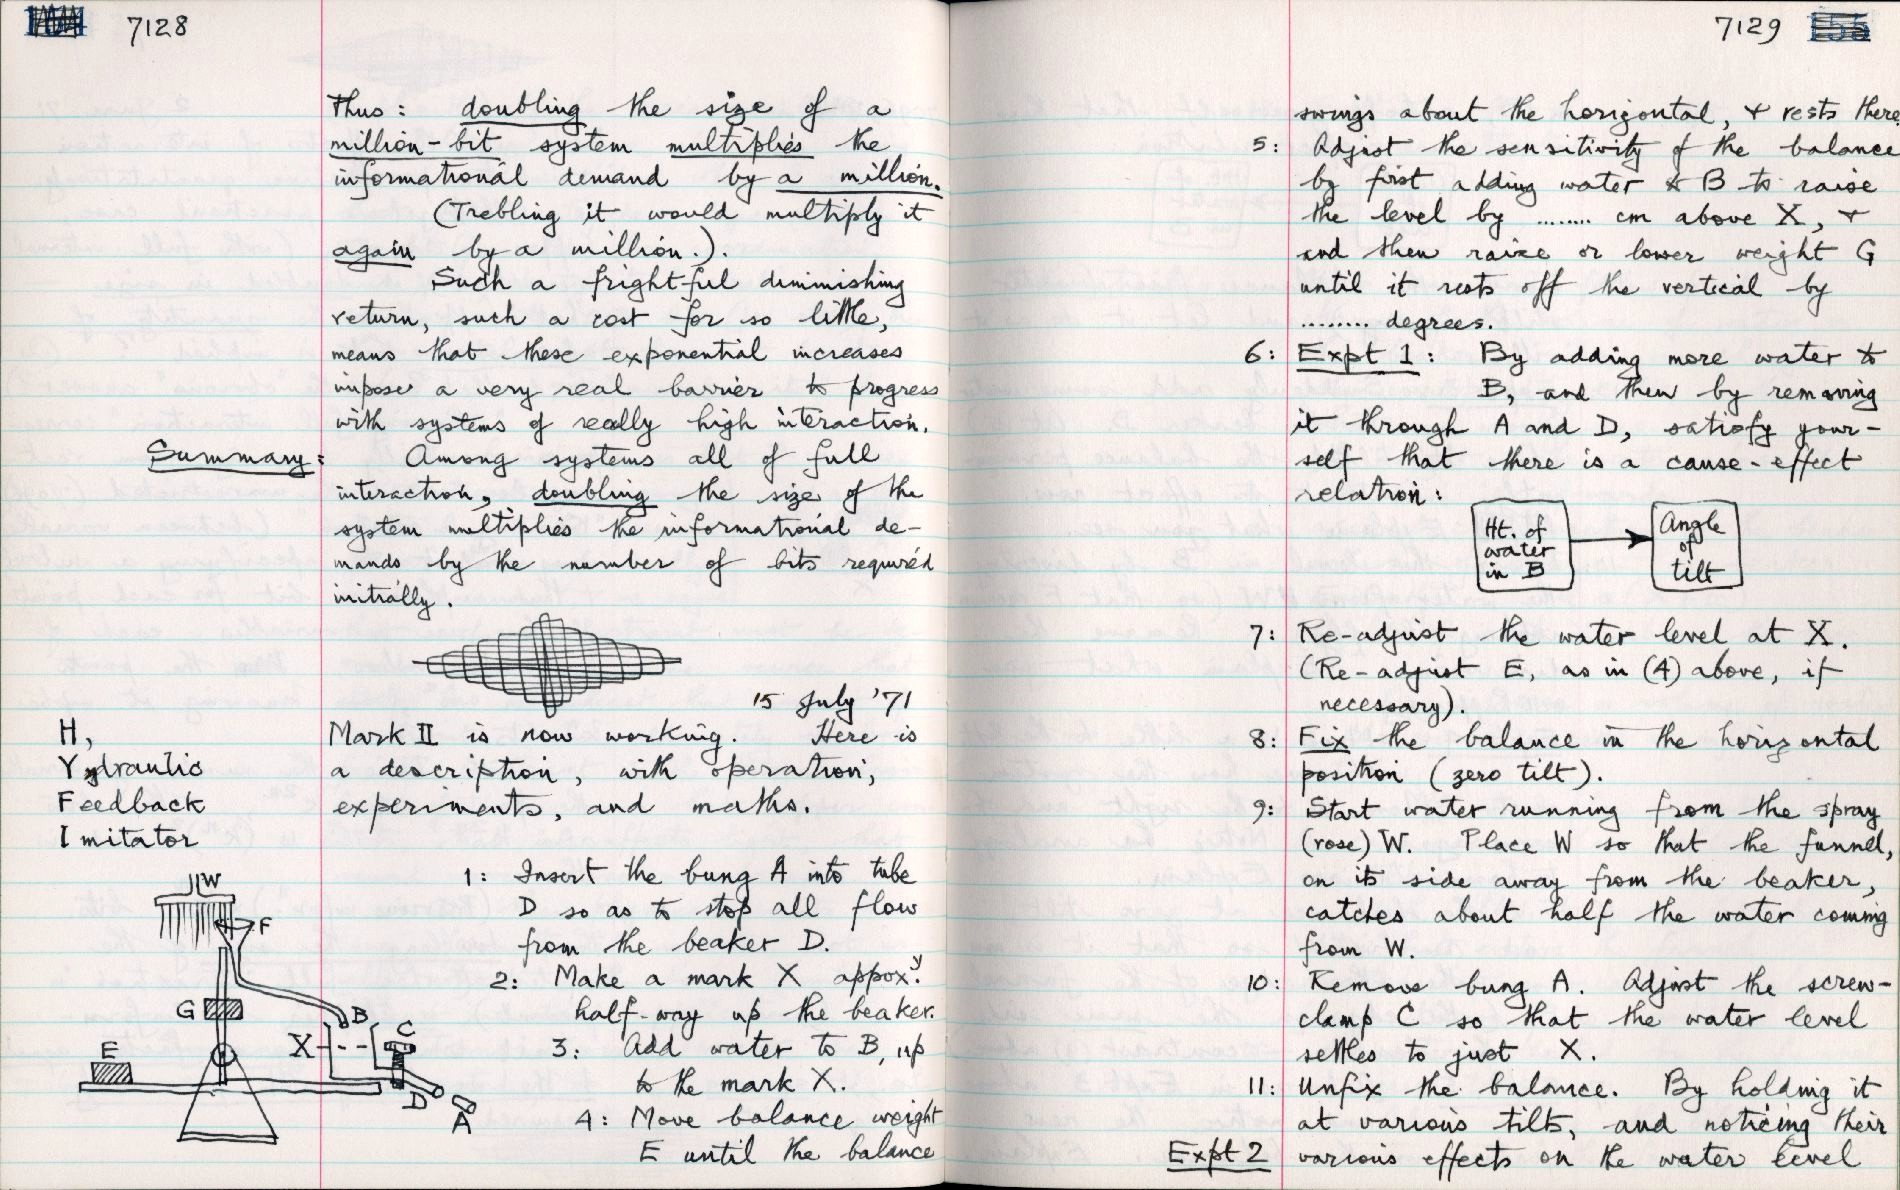 7128
Thus: doubling the size of a
million-bit system multiplies the
informational demand by a million.
(Trebling it would multiply it
again by a million.).
Such a frightful diminishing
return, such a cost for so little,
means that these exponential increases
impose a very real barrier to progress
with systems of really high interaction.
Summary: Among systems all of full
interaction, doubling the size of the
system multiplies the informational de-
mands by the number of bits required
initially.
15 July '71
H,
Ydraulic
Feedback
Imitator
Mark II is now working. Here is
a description, with operation,
experiments, and maths.
1: Insert the bung A into tube
D so as to stop all flow
from the beaker D.
2: Make a mark X appox.y
half-way up the beaker.
3: Add water to B, up
to the mark X.
4: Move balance weight
E until the balance
W
F
G
B
C
X
E
D
A
7129
swings about the horizontal, & rests there
5: Adjust the sensitivity of the balance
by first adding water to B to raise
the level by ........ cm above X, &
and then raise or lower weight G
until it rests off the vertical by
........ degrees.
6: Expt 1: By adding more water to
B, and then by removing
it through A and D, satisfy your-
self that there is a cause-effect
relation:
Ht. of
water
in B
Angle
of
tilt
7: Re-adjust the water level at X.
(Re-adjust E, as in (4) above, if
necessary).
8: Fix the balance in the horizontal
position (zero tilt).
9: Start water running from the spray
(rose) W. Place W so that the funnel,
on its side away from the beaker,
catches about half the water coming
from W.
10: Remove bung A. Adjust the screw-
clamp C so that the water level
settles to just X.
11: Unfix the balance. By holding it
at various tilts, and noticing their
Expt 2 various effects on the water level